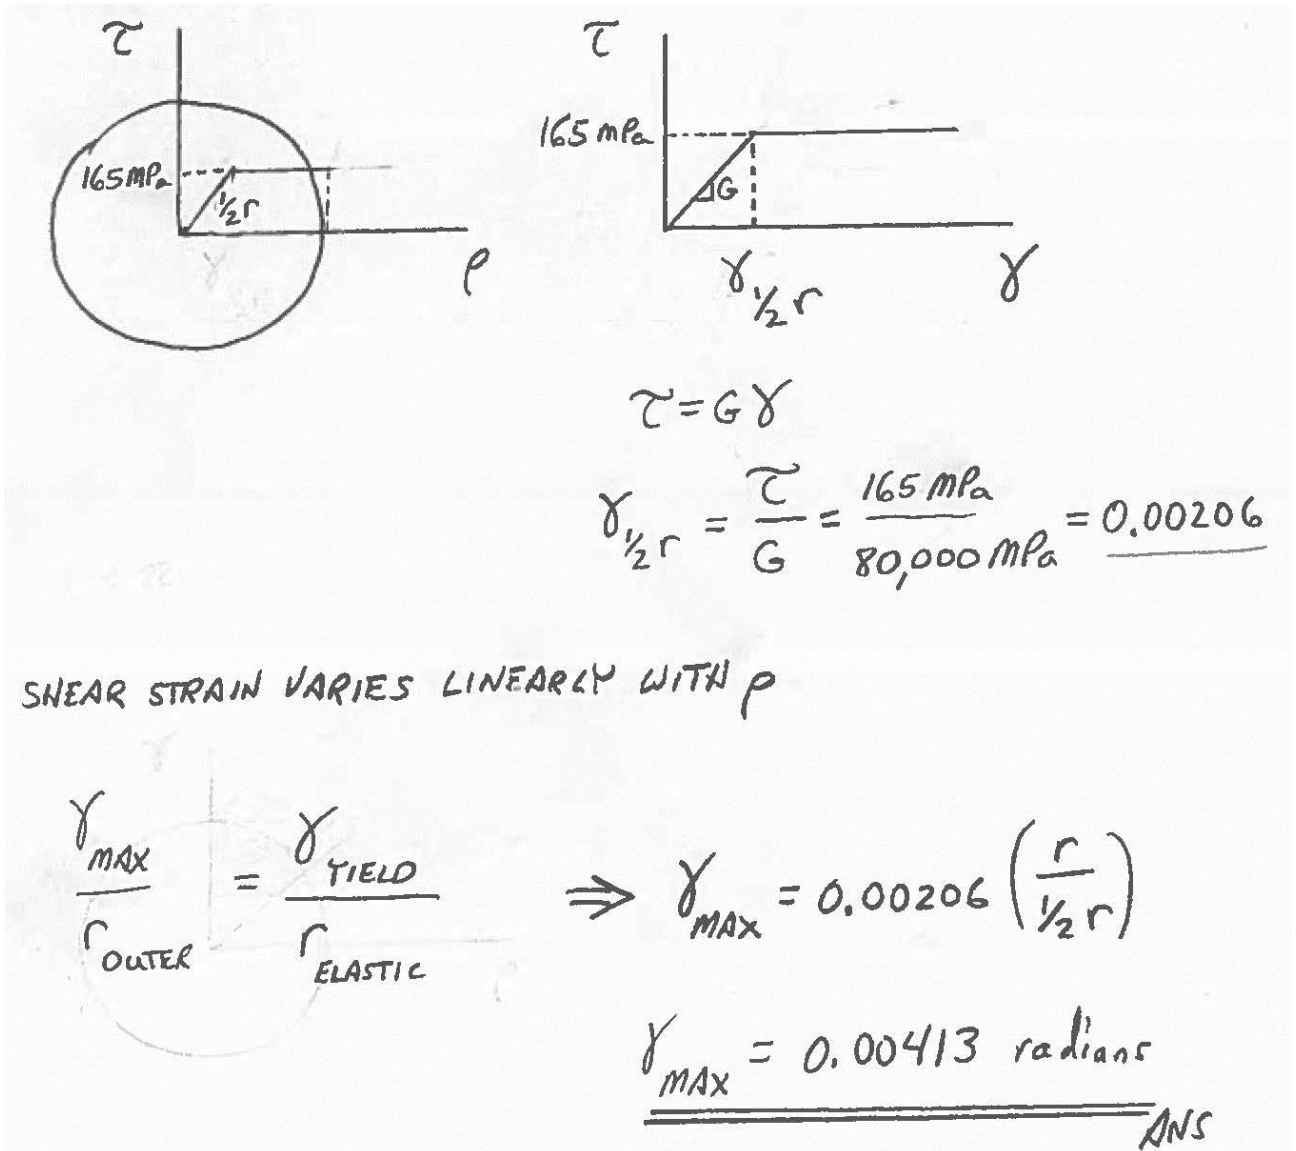 τ
165 MPa
½r
ρ
τ
165 MPa
G
γ½r
γ
τ = Gγ
γ½r = τ/G = 165 MPa/80,000 MPa = 0.00206
SHEAR STRAIN VARIES LINEARLY WITH ρ
γMAX/rOUTER = γYIELD/rELASTIC ⇒ γMAX = 0.00206 (r/½r)
γMAX = 0.00413 radians
ANS